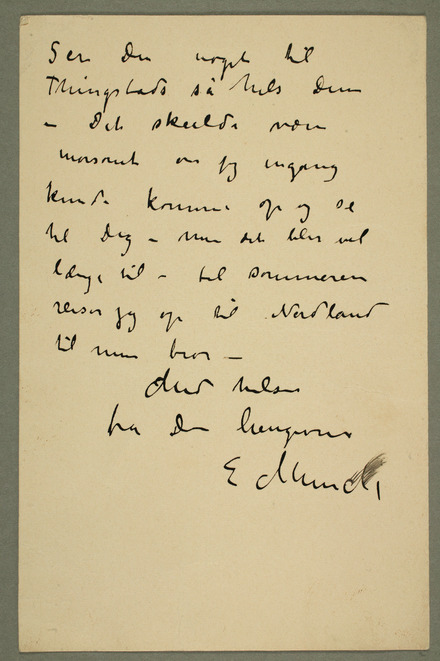 Ser Du noget til
Thingstads så hils dem
– Det skulde være
morsomt om jeg engang
kunde komme op og se
til Dig – men det blir vel
længe til – til sommeren
reiser jeg op til Nordland
til min bror –
Med hilsen
fra Din hengivne
E Munch